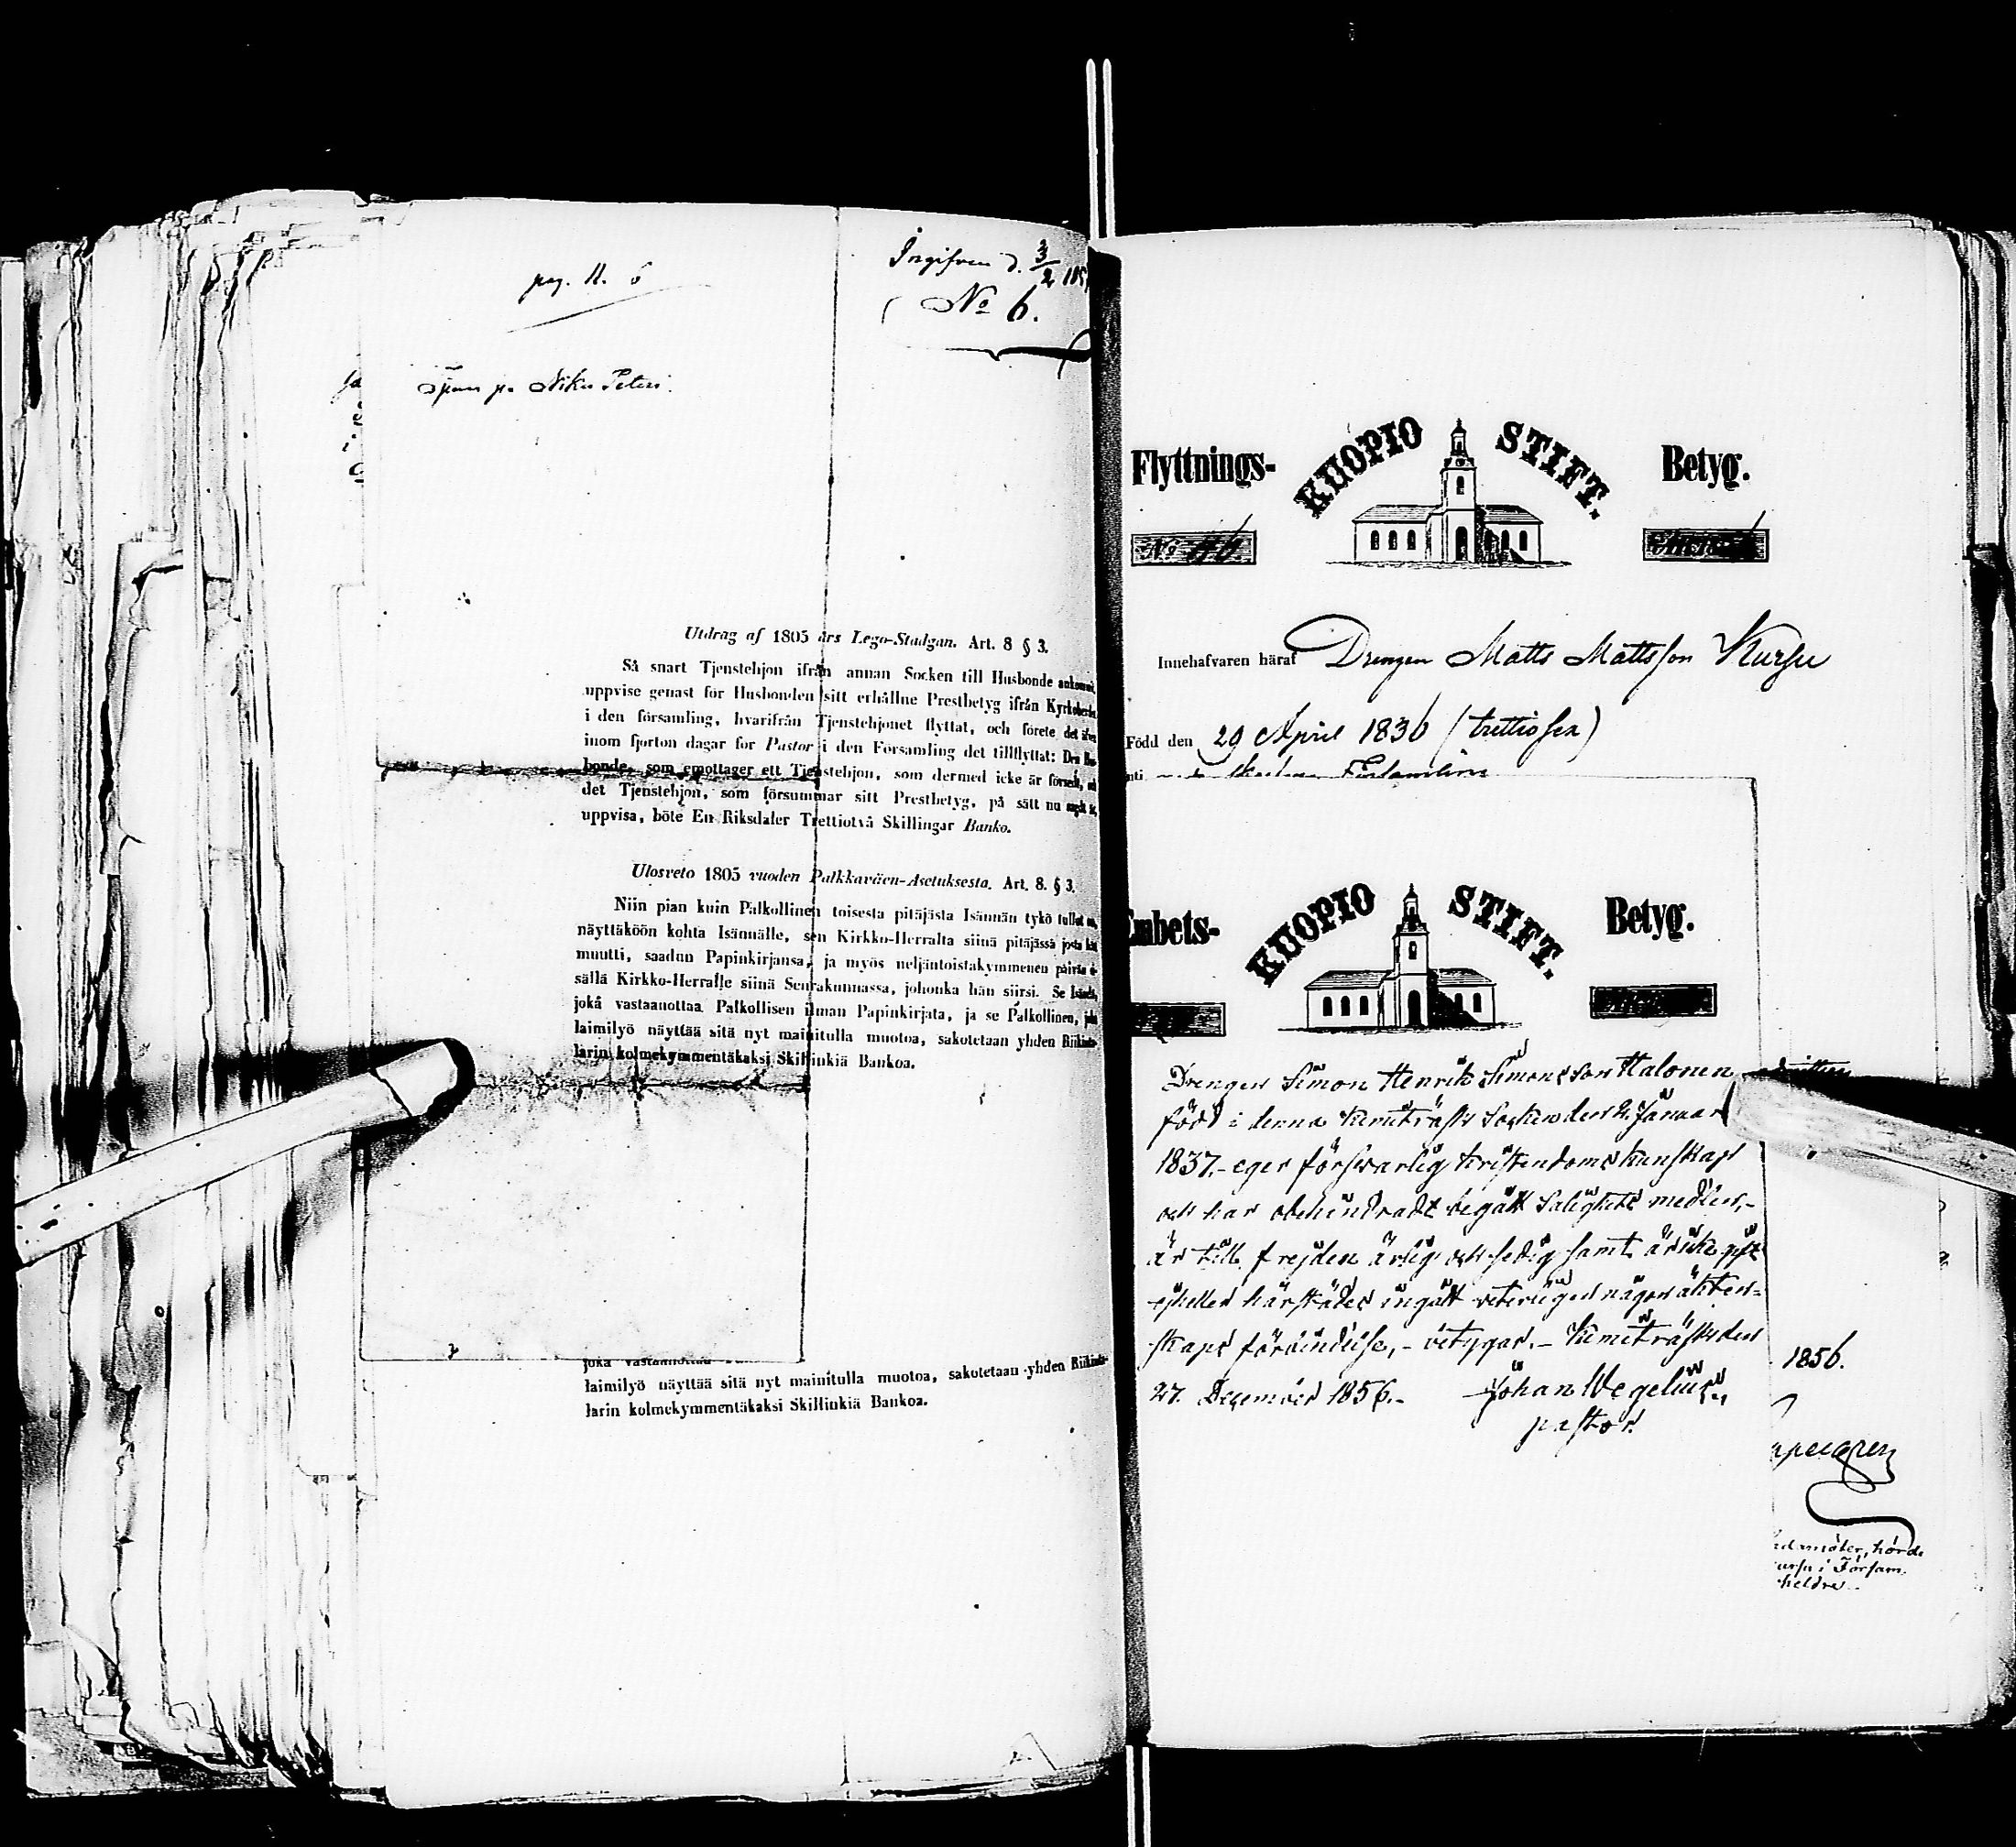 pag. 11. 5
Ingifven d. 3/2 185
No 6.
på Niku Peteri.
Utdrag af 1805 års Lego-Stadgan. Art. 8 § 3.
Så snart Tjenstehjon ifrån annan Socken till Husbonde ankommit,
uppvise genast för Husbonden sitt erhållne Prestbetyg ifrån
i den församling, hvarifrån Tjenstehjonet flyttat, och förete det
inom fjorton dagar för Pastor i den Församling det tillflyttat: Den
bonde, som emottager ett Tjenstehjon, som dermed icke är försedt,
det Tjenstehjon, som försummar sitt Prestbetyg, på sätt nu sagdt är,
uppvisa, böte En Riksdaler Trettiotvå Skillingar Banko.
Ulosveto 1805 vuoden Palkkaväen-Asetuksesta. Art. 8. § 3.
Niin pian kuin Palkollinen toisesta pitäjästa Isännän tykö tullut on,
näyttäköön kohta Isännälle, sen Kirkko-Herralta siinä pitäjässä josta hän
muutti, saadun Papinkirjansa, ja myös neljäntoistakymmenen päivän
sällä Kirkko-Herralle siinä Seurakunnassa, johonka hän siirsi. Se
joka vastaanottaa Palkollisen ilman Papinkirjata, ja se Palkollinen,
laimilyö näyttää sitä nyt mainitulla muotoa, sakotetaan yhden
larin kolmekymmentäkaksi Skillinkiä Bankoa.
joka vastaanottaa
laimilyö näyttää sitä nyt mainitulla muotoa, sakotetaan yhden
larin kolmekymmentäkaksi Skillinkiä Bankoa.
Flyttnings- KUOPIO STIFT. Betyg.
No
Innehafvaren häraf Drengen Matts Mattsson Kursu
Född den 29 April 1836 (trettiosex)
KUOPIO STIFT. Betyg.
Drengen Simon Henrik Simonsson Halonen
född i denna Kemiträsk Socken den 2 Januari
1837.- eger förswarlig kristendoms kunskap
och har obehindradt begått Salighets medlen,-
är till frejden ärlig och sedig samt är icke gift
ejheller härstädes ingått veterligen någon äkten-
skaps förbindelse,- betygar.- Kemiträsk den
27. December 1856.- Johan Wegelius.,
pastor.
1856.
hörde
i Försam.
heldre